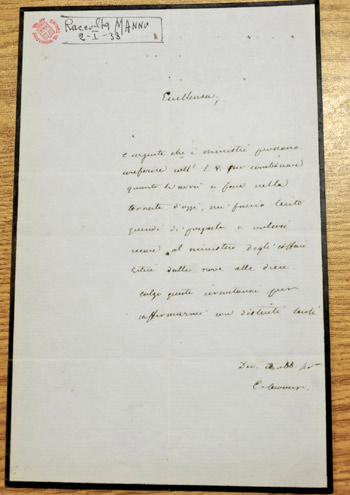 Raccolta MANNO
2-I-33
Eccellenza,
È urgente che i ministri possano
conferire coll' E. V. per combinare
quanto si avrà a fare nella
tornata d'oggi, mi faccio lecito
quindi di pregarla a volersi
recare al ministero degli affari
esteri dalle nove alle dieci.
Colgo questa circostanza per
raffermarmi con distinti sensi
Dev.
C. Cavour